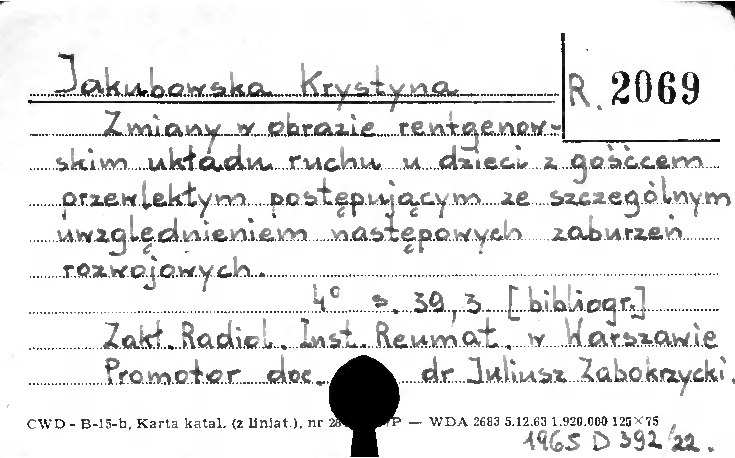 Jakubowska Krystyna
R. 2069
Zmiany w obrazie rentgenow-
skim układu ruchu u dzieci z gośćcem
przewlekłym postępującym ze szczególnym
uwzględnieniem następowych zaburzeń
rozwojowych.
4° s. 39, 3 [bibliogr.]
Zakł. Radiol. Inst. Reumat. w Warszawie
Promotor doc. dr Juliusz Zabokrzycki.
CWD - B-15-b, Karta katal. (z liniat.), nr P — WDA 2683 5.12.63 1.920.000 125×75
1965 D 392/22.